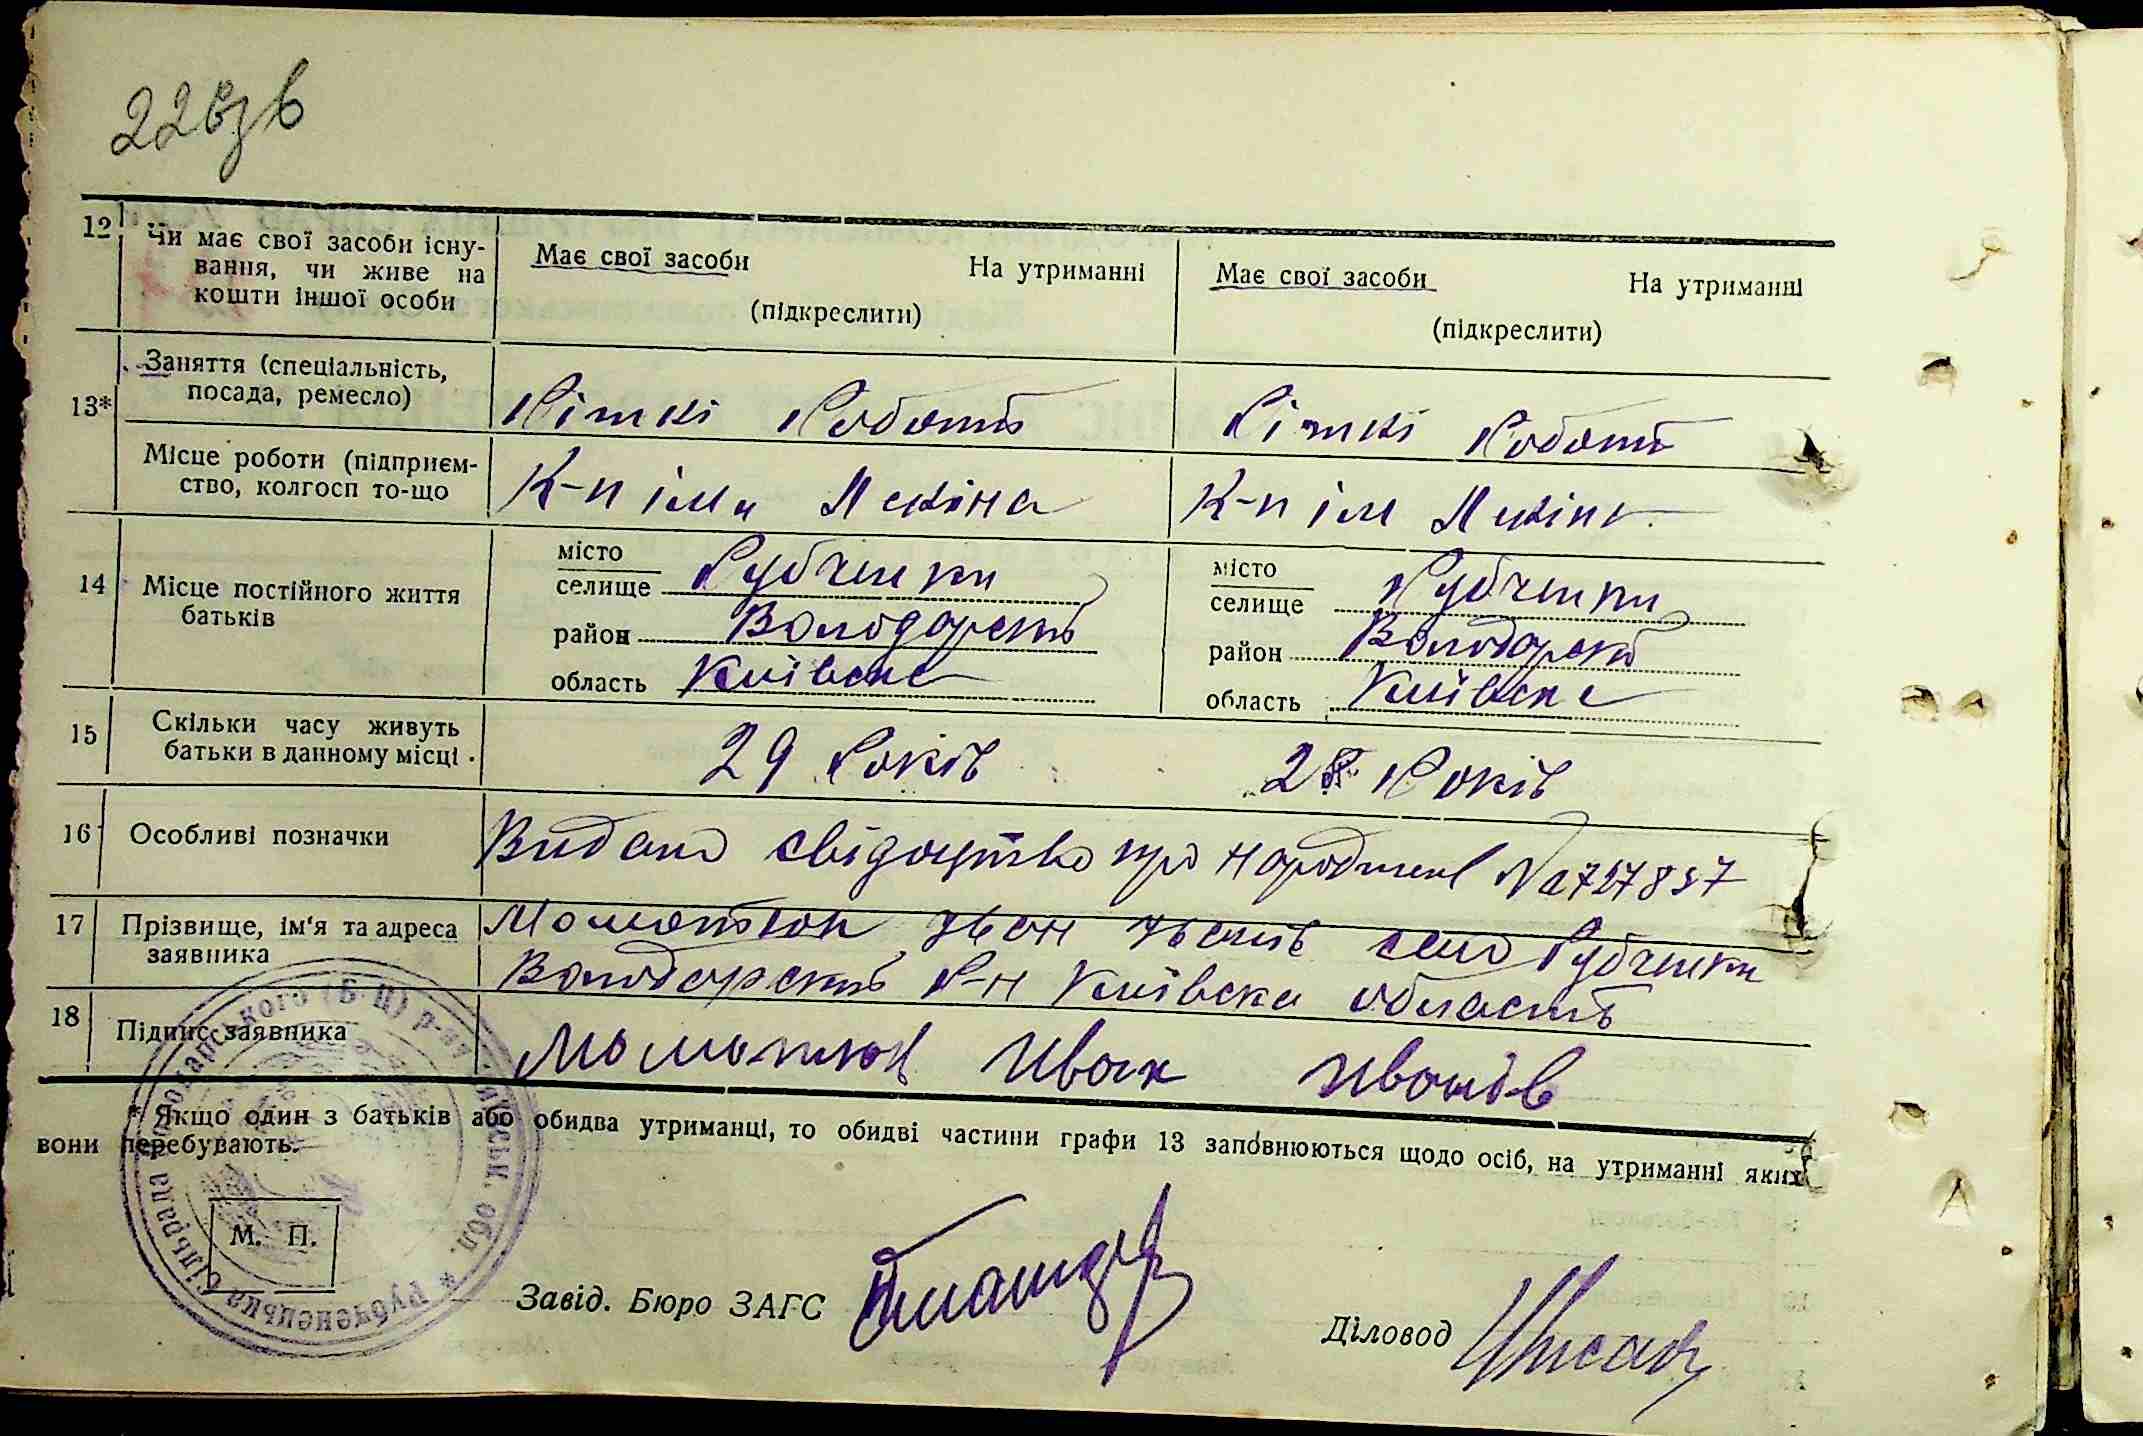 22 взв
12 Чи має свої засоби існу-
вання, чи живе на
кошти іншої особи
Має свої засоби На утриманні
(підкреслити)
Має свої засоби На утриманні
(підкреслити)
13* Заняття (спеціальність,
посада, ремесло)
Ріжкі Роботи Ріжкі Роботи
Місце роботи (підприєм-
ство, колгосп то-що
К-п ім Лєніна К-п ім Лєніна
14 Місце постійного життя
батьків
місто
селище Рубченки
район Володарськ
область Київська
місто
селище Рубченки
район Володарськ
область Київська
15 Скільки часу живуть
батьки в данному місці
29 Років Років
16 Особливі позначки
Видано свідоцтво про народжен №
17 Прізвище, ім'я та адреса
заявника
Моматюк село Рубченки
Володарськ Р-н Київська область
18 Підпис заявника
Моматюк Иван Иванів
* Якщо один з батьків або обидва утриманці, то обидві частини графи 13 заповнюються щодо осіб, на утриманні яких
вони перебувають.
Рубченецька сільрада Володарського (Б-Ц) р-ну Київськ. обл. *
М. П.
Завід. Бюро ЗАГС
Діловод